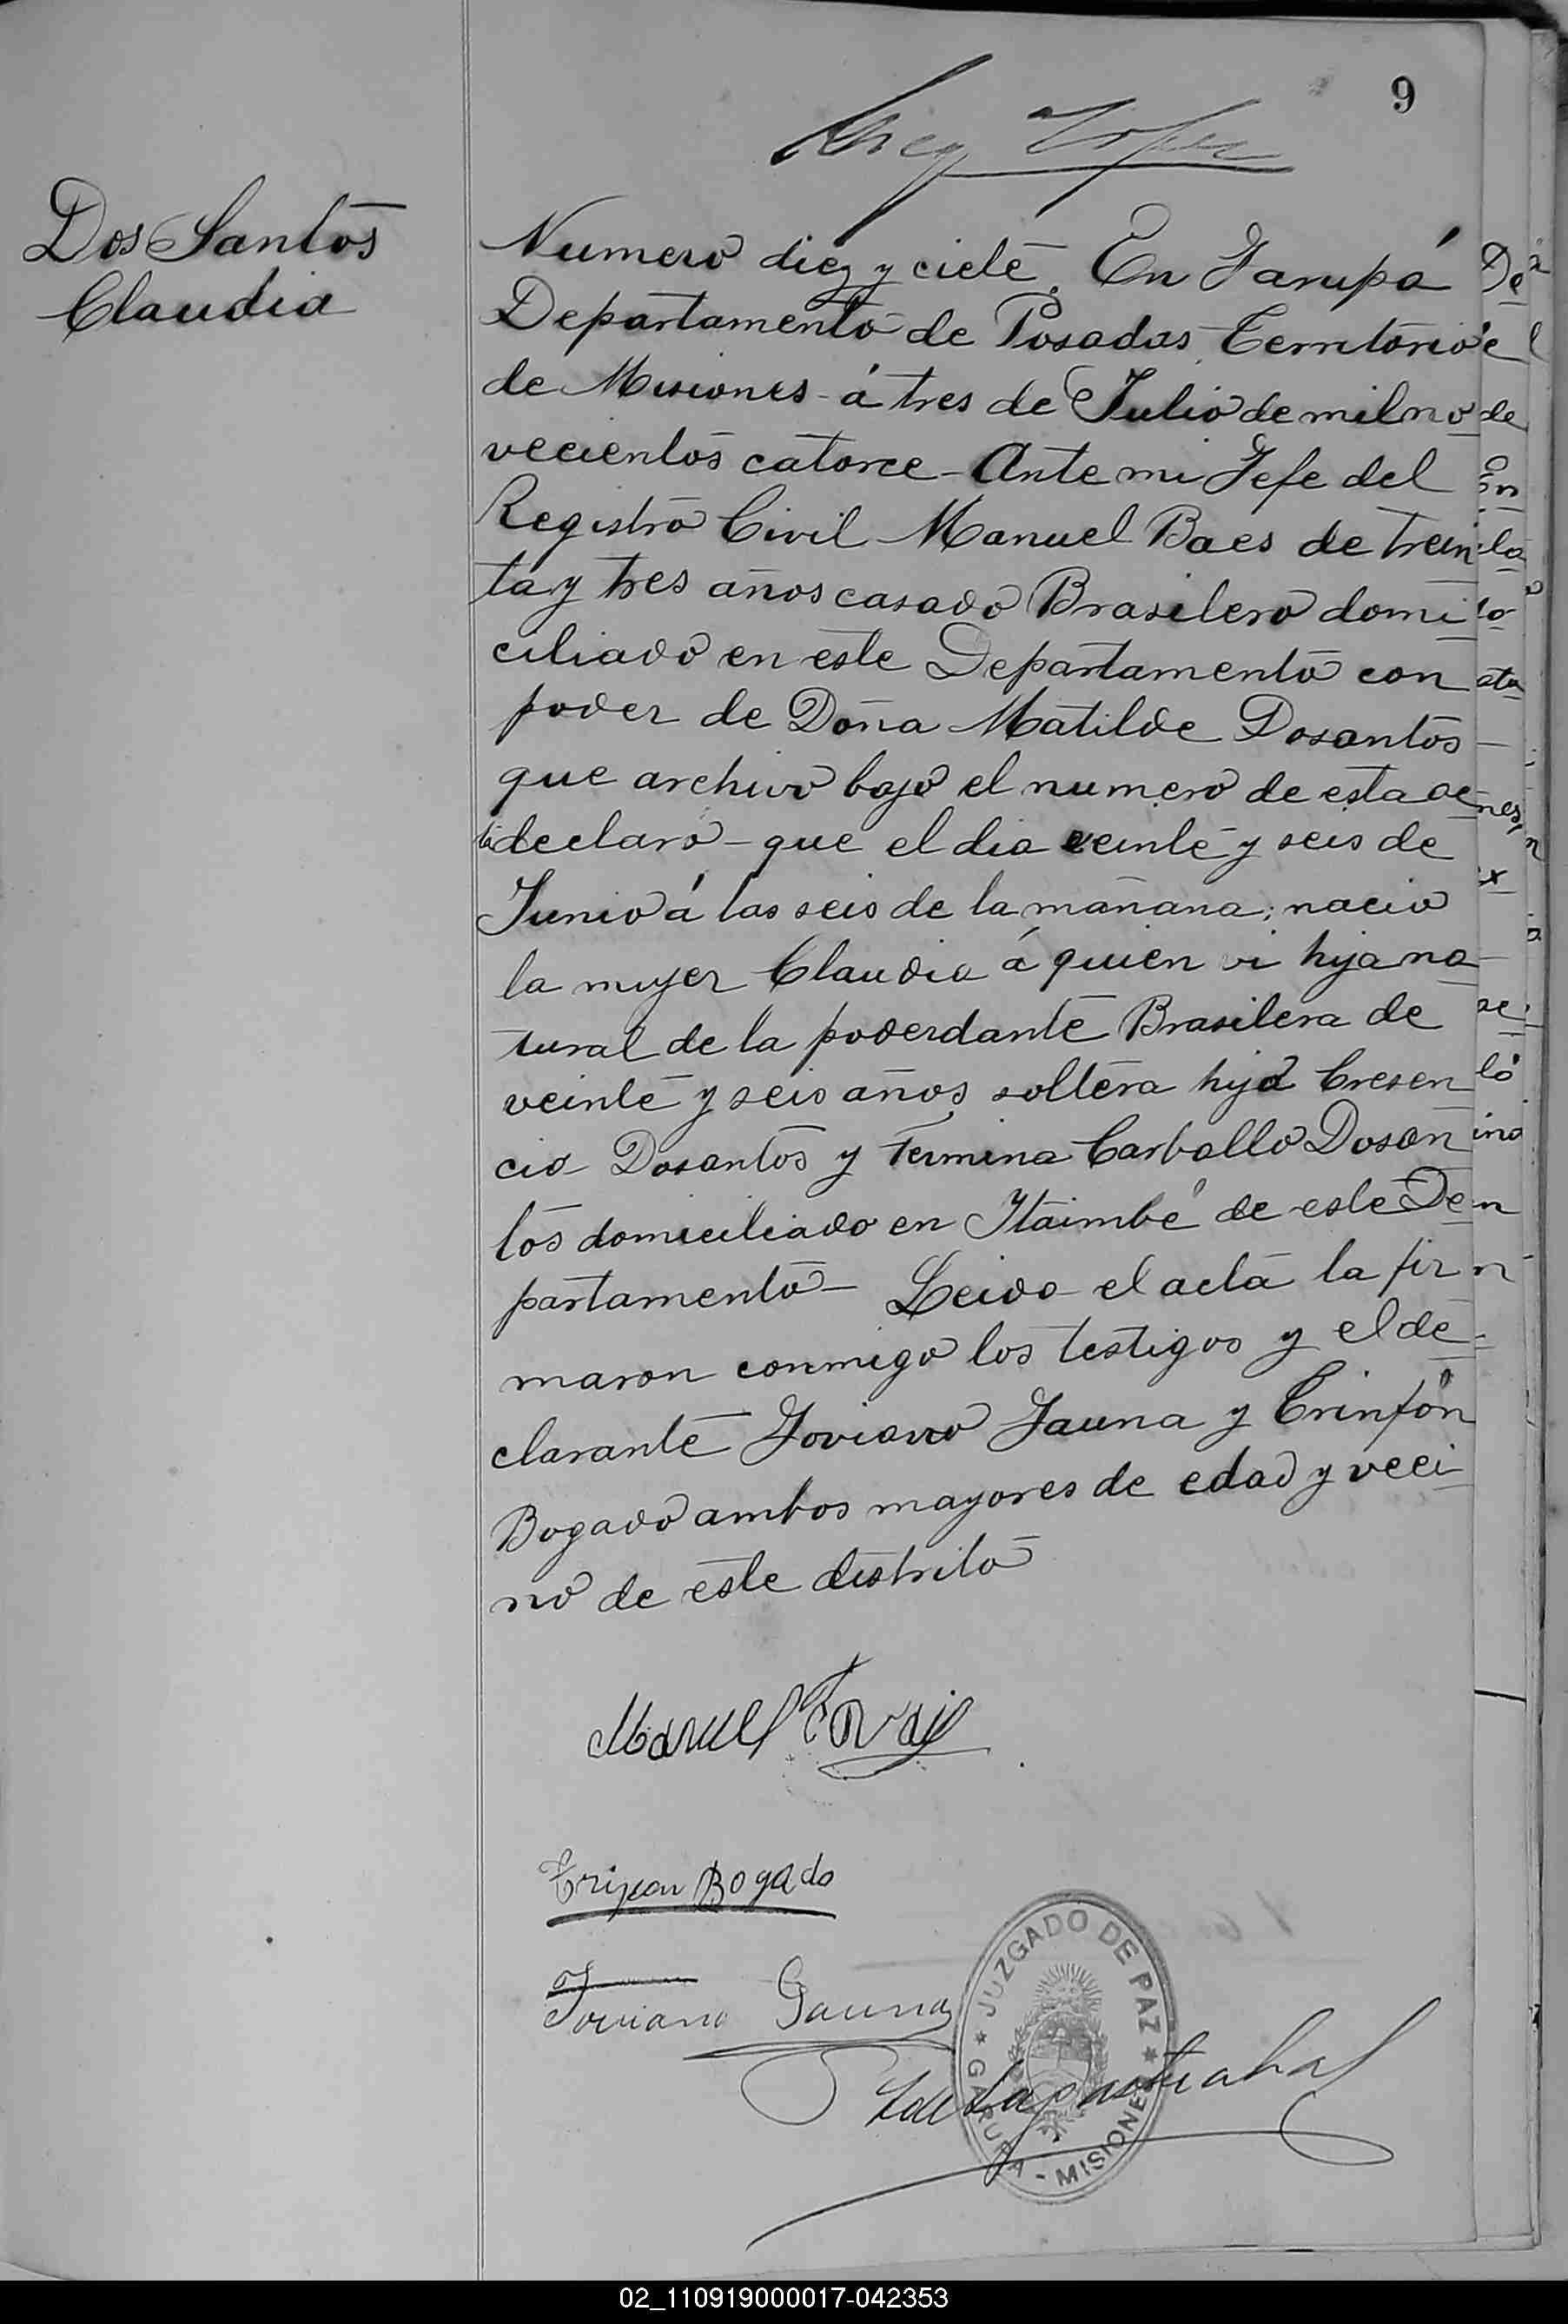 9
Dos Santos
Claudia
Numero diez y ciete. En Garupá
Departamento de Posadas Territorio
de Misiones - á tres de Julio de mil no
vecientos catorce - Ante mi Jefe del
Registro Civil Manuel Baes de trein
ta y tres años casado Brasilero domi
ciliado en este Departamento con
poder de Doña Matilde Dosantos
que archivo bajo el numero de esta ac
ta declaro - que el dia veinte y seis de
Junio á las seis de la mañana; nacio
la mujer Claudia á quien vi hija na
tural de la poderdante Brasilera de
veinte y seis años soltera hija Cresen
cio Dosantos y Fermina Carballo Dosan
tos domiciliado en Itaimbé de este De
partamento - Leida el acta la fir
maron conmigo los testigos y el de
clarante Joviano Gauna y Trinfón
Bogado ambos mayores de edad y veci
no de este distrito
Manuel
Bogado
Joviano Gauna
JUZGADO DE PAZ
GARUPA - MISIONES
02_110919000017-042353